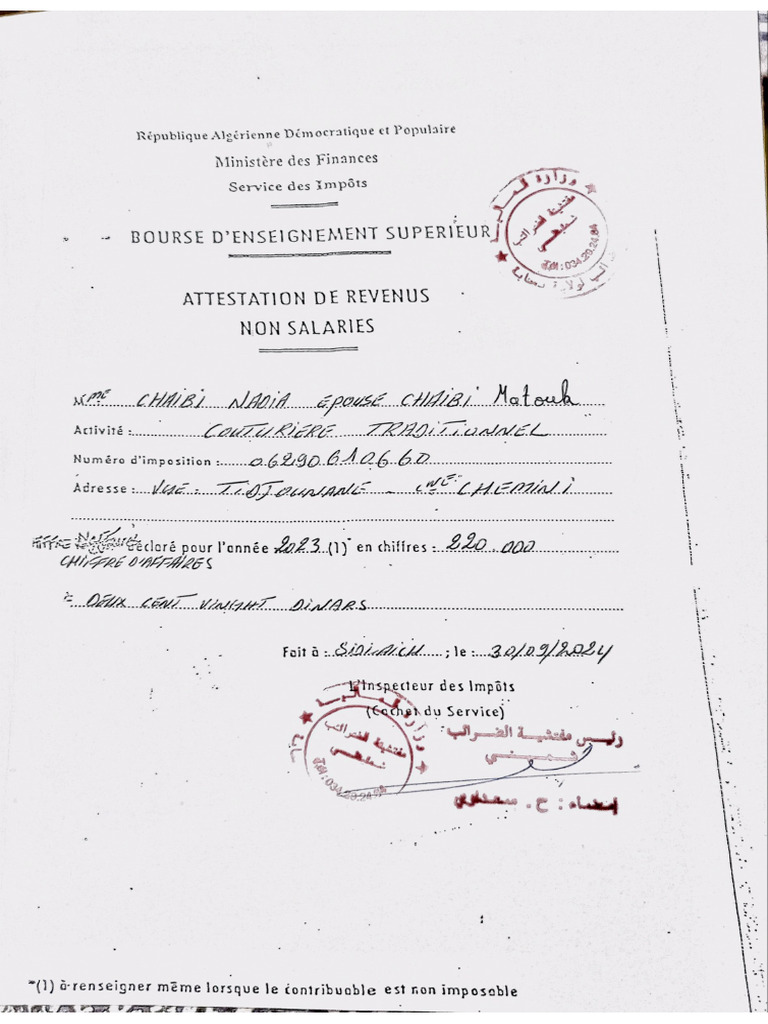 République Algérienne Démocratique et Populaire
Ministère des Finances
Service des Impôts
BOURSE D'ENSEIGNEMENT SUPERIEUR
وزارة المالية
مفتشية الضرائب
Tél : 034.29.24.84
ATTESTATION DE REVENUS
NON SALARIES
Mme CHAIBI NADIA EPOUSE CHAIBI Matouk
Activité : COUTURIERE TRADITIONNEL
Numéro d'imposition : 06290610660
Adresse : VGE : TIDJOUNANE - CNE CHEMINI
déclaré pour l'année 2023 (1) en chiffres : 220.000
CHIFFRE D'AFFAIRES
= DEUX CENT VINGHT DINARS
Fait à : SIDI AICH ; le : 30/09/2024
L'Inspecteur des Impôts
(Cachet du Service)
وزارة المالية
مفتشية الضرائب
رئيس مفتشية الضرائب
شميني
إمضاء : ح . سعداوي
(1) à renseigner même lorsque le contribuable est non imposable